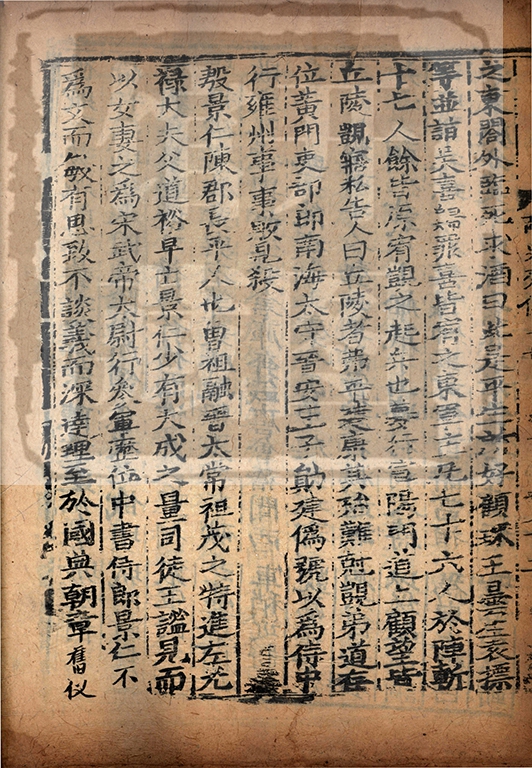 之東閣外臨死求酒曰此是平生所好顧琛王曇生袁摽
等並詣吳喜歸罪喜皆宥之東軍主凡七十六人於陣斬
十七人餘皆原宥觀之起兵也夢行宣陽門道上顧望皆
丘陵觀寤私告人曰丘陵者弗平建康其殆難剋觀弟道存
位黃門吏部郎南海太守晉安王子勛建偽號以爲侍中
行雍州事事敗見殺
殷景仁陳郡長平人也曾祖融晉太常祖茂之特進左光
祿大夫父道裕早亡景仁少有大成之量司徒王謐見而
以女妻之爲宋武帝太尉行參軍歷位中書侍郎景仁不
爲文而敏有思致不談義而深達理至於國典朝章舊儀